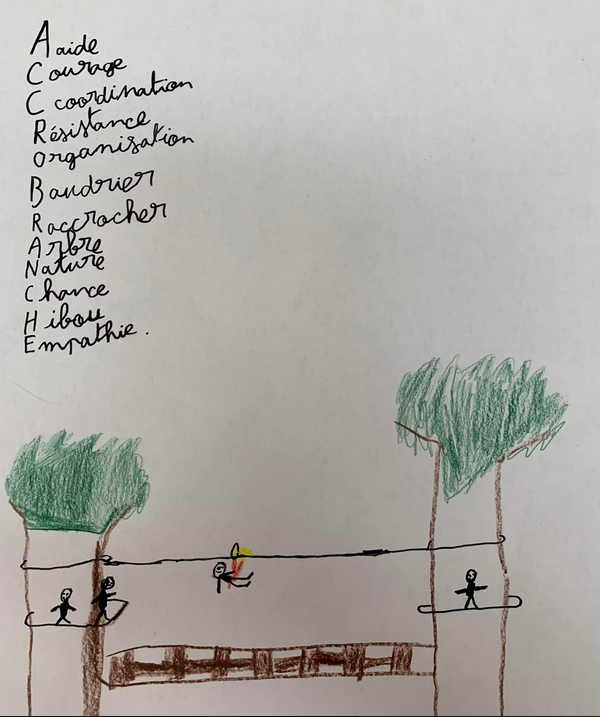 A aide
Courage
C coordination
Résistance
Organisation
Baudrier
Raccrocher
Arbre
Nature
Chance
Hibou
Empathie.